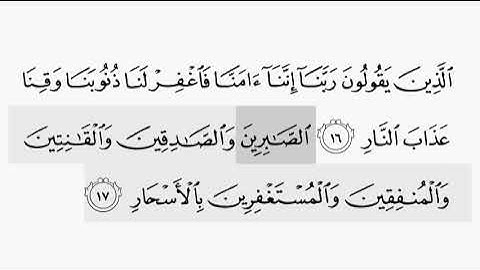 ٱلَّذِينَ يَقُولُونَ رَبَّنَآ إِنَّنَآ ءَامَنَّا فَٱغْفِرْ لَنَا ذُنُوبَنَا وَقِنَا
عَذَابَ ٱلنَّارِ ١٦ ٱلصَّـٰبِرِينَ وَٱلصَّـٰدِقِينَ وَٱلْقَـٰنِتِينَ
وَٱلْمُنفِقِينَ وَٱلْمُسْتَغْفِرِينَ بِٱلْأَسْحَارِ ١٧